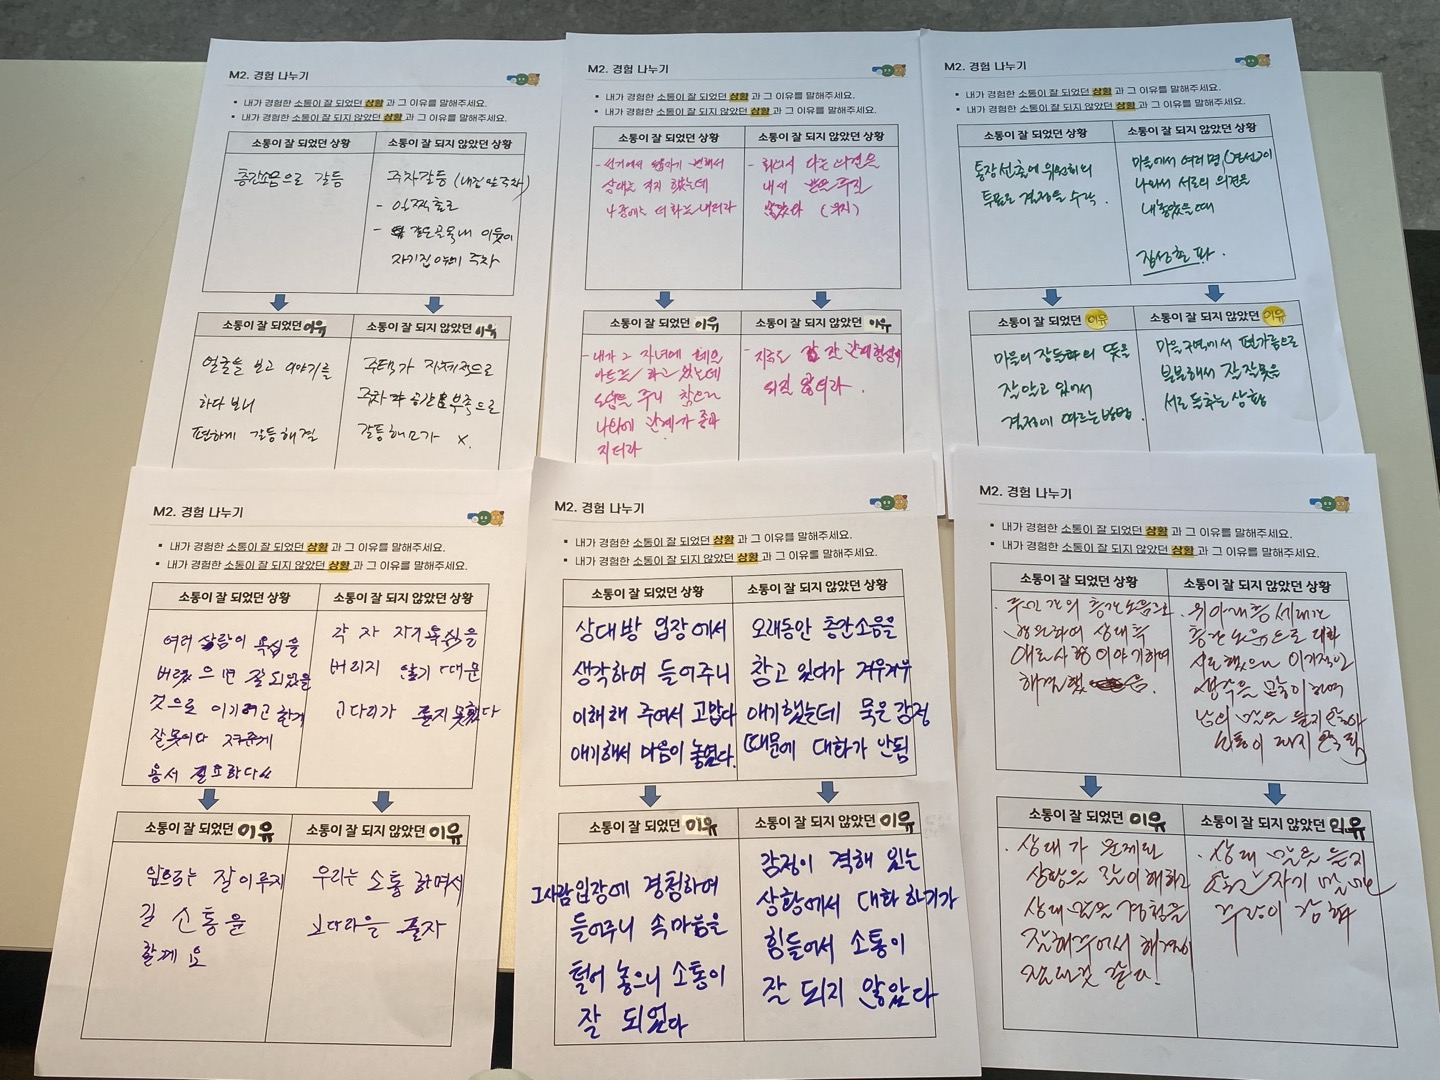 M2. 경험 나누기
▪ 내가 경험한 소통이 잘 되었던 상황 과 그 이유를 말해주세요.
▪ 내가 경험한 소통이 잘 되지 않았던 상황 과 그 이유를 말해주세요.
소통이 잘 되었던 상황
층간소음으로 갈등
소통이 잘 되지 않았던 상황
주차갈등 (내집 앞 주차)
- 일찍 출근
자기집 앞에 주차
소통이 잘 되었던 이유
얼굴을 보고 이야기를
하다 보니
편하게 갈등해결
소통이 잘 되지 않았던 이유
주택가 자체적으로
주차 공간 부족으로
갈등해소가 x.
M2. 경험 나누기
▪ 내가 경험한 소통이 잘 되었던 상황 과 그 이유를 말해주세요.
▪ 내가 경험한 소통이 잘 되지 않았던 상황 과 그 이유를 말해주세요.
소통이 잘 되었던 상황
- 선거에서
상대는 했는데
나중에는
소통이 잘 되지 않았던 상황
- 회의시 다른 의견을
내서
않았다 (무시)
소통이 잘 되었던 이유
- 내가 그 자녀에
하고 있는데
나와의 관계가
지더라
소통이 잘 되지 않았던 이유
되질 않더라.
M2. 경험 나누기
▪ 내가 경험한 소통이 잘 되었던 상황 과 그 이유를 말해주세요.
▪ 내가 경험한 소통이 잘 되지 않았던 상황 과 그 이유를 말해주세요.
소통이 잘 되었던 상황
통장선출에 위원회의
투표로 결정을 수락.
소통이 잘 되지 않았던 상황
마을에서 여러명(경선)이
나와서 서로의 의견을
내놓았을때
소통이 잘 되었던 이유
마을의 뜻을
잘 알고 있어서
결정에 따르는 방법.
소통이 잘 되지 않았던 이유
마을 구역에서 편가름으로
분분해서 잘잘못을
서로 들추는 상황
M2. 경험 나누기
▪ 내가 경험한 소통이 잘 되었던 상황 과 그 이유를 말해주세요.
▪ 내가 경험한 소통이 잘 되지 않았던 상황 과 그 이유를 말해주세요.
소통이 잘 되었던 상황
여러 사람이 욕심을
버렸으면 잘 되었을
것으로
잘못이다
용서 필요하다
소통이 잘 되지 않았던 상황
각자 자기 욕심을
버리지 않기 때문
고다리가 풀지 못했다
소통이 잘 되었던 이유
앞으로는 잘 이루지
길 소통을
할께요
소통이 잘 되지 않았던 이유
우리는 소통 하면서
고다리을 풀자
M2. 경험 나누기
▪ 내가 경험한 소통이 잘 되었던 상황 과 그 이유를 말해주세요.
▪ 내가 경험한 소통이 잘 되지 않았던 상황 과 그 이유를 말해주세요.
소통이 잘 되었던 상황
상대방 입장에서
생각하여 들어주니
이해해 주어서 고맙다
얘기해서 마음이 놓였다.
소통이 잘 되지 않았던 상황
오래동안 층간소음을
참고 있다가 겨우겨우
얘기했는데 묵은 감정
때문에 대화가 안됨
소통이 잘 되었던 이유
그사람입장에 경청하여
들어주니 속마음을
털어 놓으니 소통이
잘 되었다
소통이 잘 되지 않았던 이유
감정이 격해 있는
상황에서 대화하기가
힘들어서 소통이
잘 되지 않았다
M2. 경험 나누기
▪ 내가 경험한 소통이 잘 되었던 상황 과 그 이유를 말해주세요.
▪ 내가 경험한 소통이 잘 되지 않았던 상황 과 그 이유를 말해주세요.
소통이 잘 되었던 상황
· 주민간의 층간소음으로
상대측
애로사항 이야기하며
해결했음.
소통이 잘 되지 않았던 상황
· 위아래층 세대간
층간소음으로 대화
시도했으나 이기적인
생각을 많이하며
남의 말을 듣지않아
소통이 되지 않음
소통이 잘 되었던 이유
· 상대가 문제된
상황을 잘 이해하고
상대 말을 경청을
잘해주어서 해결이
잘 된것 같다!
소통이 잘 되지 않았던 이유
· 상대 말을 듣지
않고 자기 말만
주장이 강함